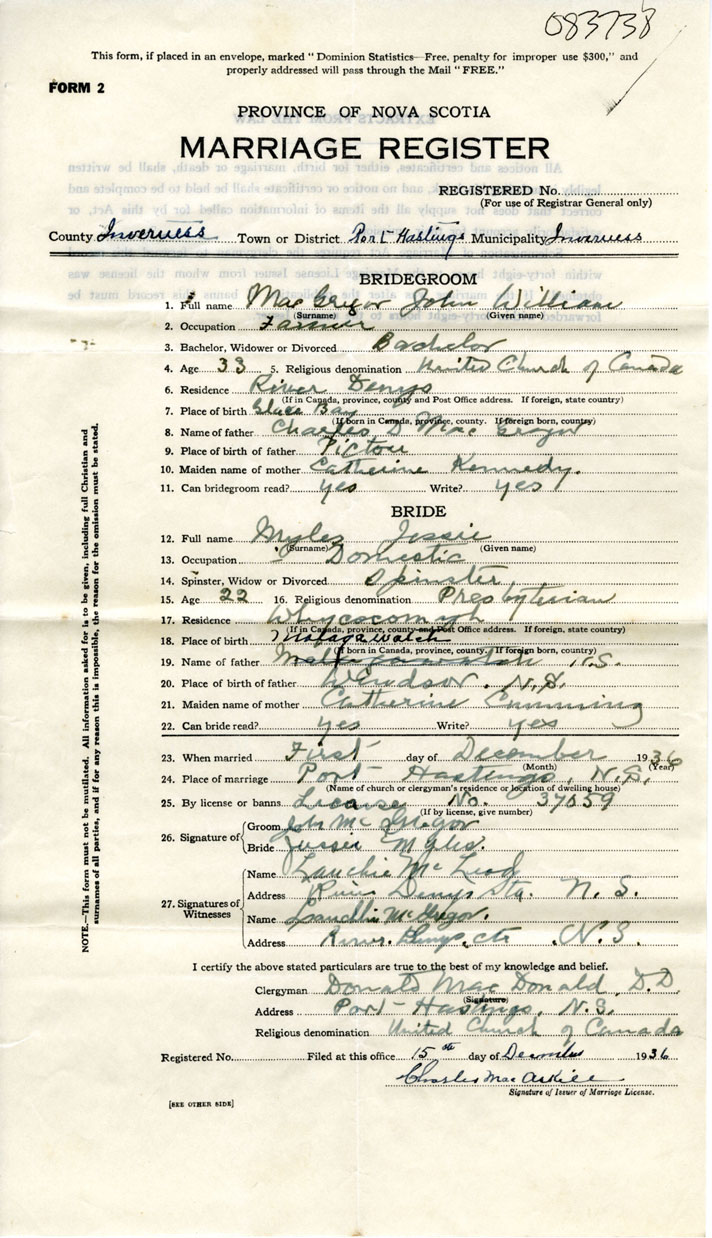 083738
This form, if placed in an envelope, marked "Dominion Statistics—Free, penalty for improper use $300," and
properly addressed will pass through the Mail "FREE."
FORM 2
PROVINCE OF NOVA SCOTIA
MARRIAGE REGISTER
REGISTERED No.
(For use of Registrar General only)
County Inverness Town or District Port Hastings Municipality Inverness
BRIDEGROOM
1. Full name MacGregor John William
(Surname) (Given name)
2. Occupation Farmer
3. Bachelor, Widower or Divorced Bachelor
4. Age 33 5. Religious denomination United Church of Canada
6. Residence River Denys
(If in Canada, province, county and Post Office address. If foreign, state country)
7. Place of birth Glace Bay
(If born in Canada, province, county. If foreign born, country)
8. Name of father Charles D MacGregor
9. Place of birth of father Pictou
10. Maiden name of mother Catherine Kennedy.
11. Can bridegroom read? yes Write? yes
BRIDE
12. Full name Myles Jessie
(Surname) (Given name)
13. Occupation Domestic
14. Spinster, Widow or Divorced Spinster
15. Age 22 16. Religious denomination Presbyterian
17. Residence Whycocomagh
(If in Canada, province, county and Post Office address. If foreign, state country)
18. Place of birth Malagawatch
(If born in Canada, province, county. If foreign born, country)
19. Name of father N.S.
20. Place of birth of father Windsor, N.S.
21. Maiden name of mother Catherine Cumming
22. Can bride read? yes Write? yes
23. When married First day of December 1936
(Month) (Year)
24. Place of marriage Port Hastings, N.S.
(Name of church or clergyman's residence or location of dwelling house)
25. By license or banns License No. 37059
(If by license, give number)
26. Signature of Groom John McGregor
Bride Jessie Myles.
27. Signatures of Witnesses
Name Lauchie McLeod
Address River Denys Sta. N.S.
Name McGregor.
Address River Denys, N.S.
I certify the above stated particulars are true to the best of my knowledge and belief.
Clergyman Donald MacDonald, D.D.
(Signature)
Address Port Hastings, N.S.
Religious denomination United Church of Canada
Registered No. Filed at this office 15th day of December 1936
Charles MacAskill
Signature of Issuer of Marriage License.
[SEE OTHER SIDE]
NOTE.—This form must not be mutilated. All information asked for is to be given, including full Christian and
surnames of all parties, and if for any reason this is impossible, the reason for the omission must be stated.